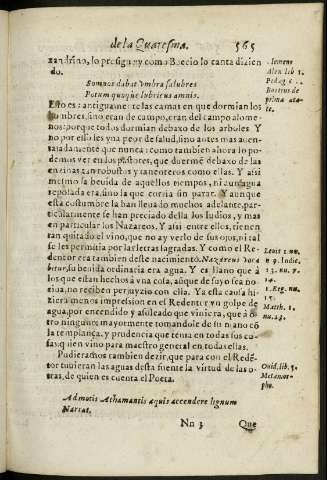 de la Quaresma. 565
xandrino, lo prosigue y como Boecio lo canta dizien
do.
Somnos dabat vmbra salubres
Potum quoque lubricus amnis.
Esto es: antiguamente las camas en que dormian los
hombres, sino eran de campo, eran del campo alome-
nos: porque todos dormian debaxo de los arboles. Y
no por esso les yua peor de salud, sino antes mas auen-
tajadamente que nunca: como tambien ahora lo po-
demos ver en los pastores, que duermẽ debaxo de las
enzinas tan robustos y tan enteros como ellas. Y assi
mesmo la beuida de aquellos tiempos, ni aun agua
repolada era, sino la que corria sin parar. Y aunque
esta costumbre la han lleuado muchos adelante, par-
ticularmente se han preciado della los Iudios, y mas
en particular los Nazareos. Y assi entre ellos, tienen
tan quito el vino, que no ay verlo de sus ojos, ni tal
se les permitia por las letras sagradas. Y como el Re-
dentor era tambien deste nacimiento. Nazareus voca
bitur, su beuida ordinaria era agua. Y es llano que à
los que estan hechos à vna cosa, aũque de suyo sea no
ciua, no reciben perjuyzio con ella. Ya esta causa hi-
ziera menos impression en el Redentor vn golpe de
agua, por encendido y asoleado que viniera, que à o-
tro ninguno: mayormente tomandole de su mano cõ
la templança, y prudencia que tenia en todas sus co-
sas, quien vino para maestro general en todas ellas.
Pudieramos tambien dezir, que para con el Redẽ-
tor tuuieran las aguas desta fuente la virtud de las o-
tras, de quien es cuenta el Poeta.
Admotis Athamantis aquis accendere lignum
Narrat.
Nn 3 Que
Clemens
Alex. lib 1.
Pedag. c.
Boetius de
prima æta-
te.
Leuit 1 nu.
n 9. Iudic.
13. nu. 7.
14.
1. Reg. nu.
15.
Matth. 1.
nu. 23.
Ouid. lib. 5.
Metamor-
pho.